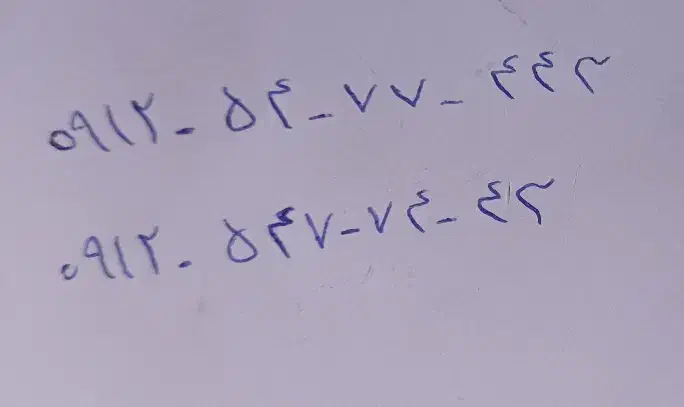 ۰۹۱۲ - ۵۴ - ۷۷ - ۴۴۳
۰۹۱۲ - ۵۴۷ - ۷۴ - ۴۳